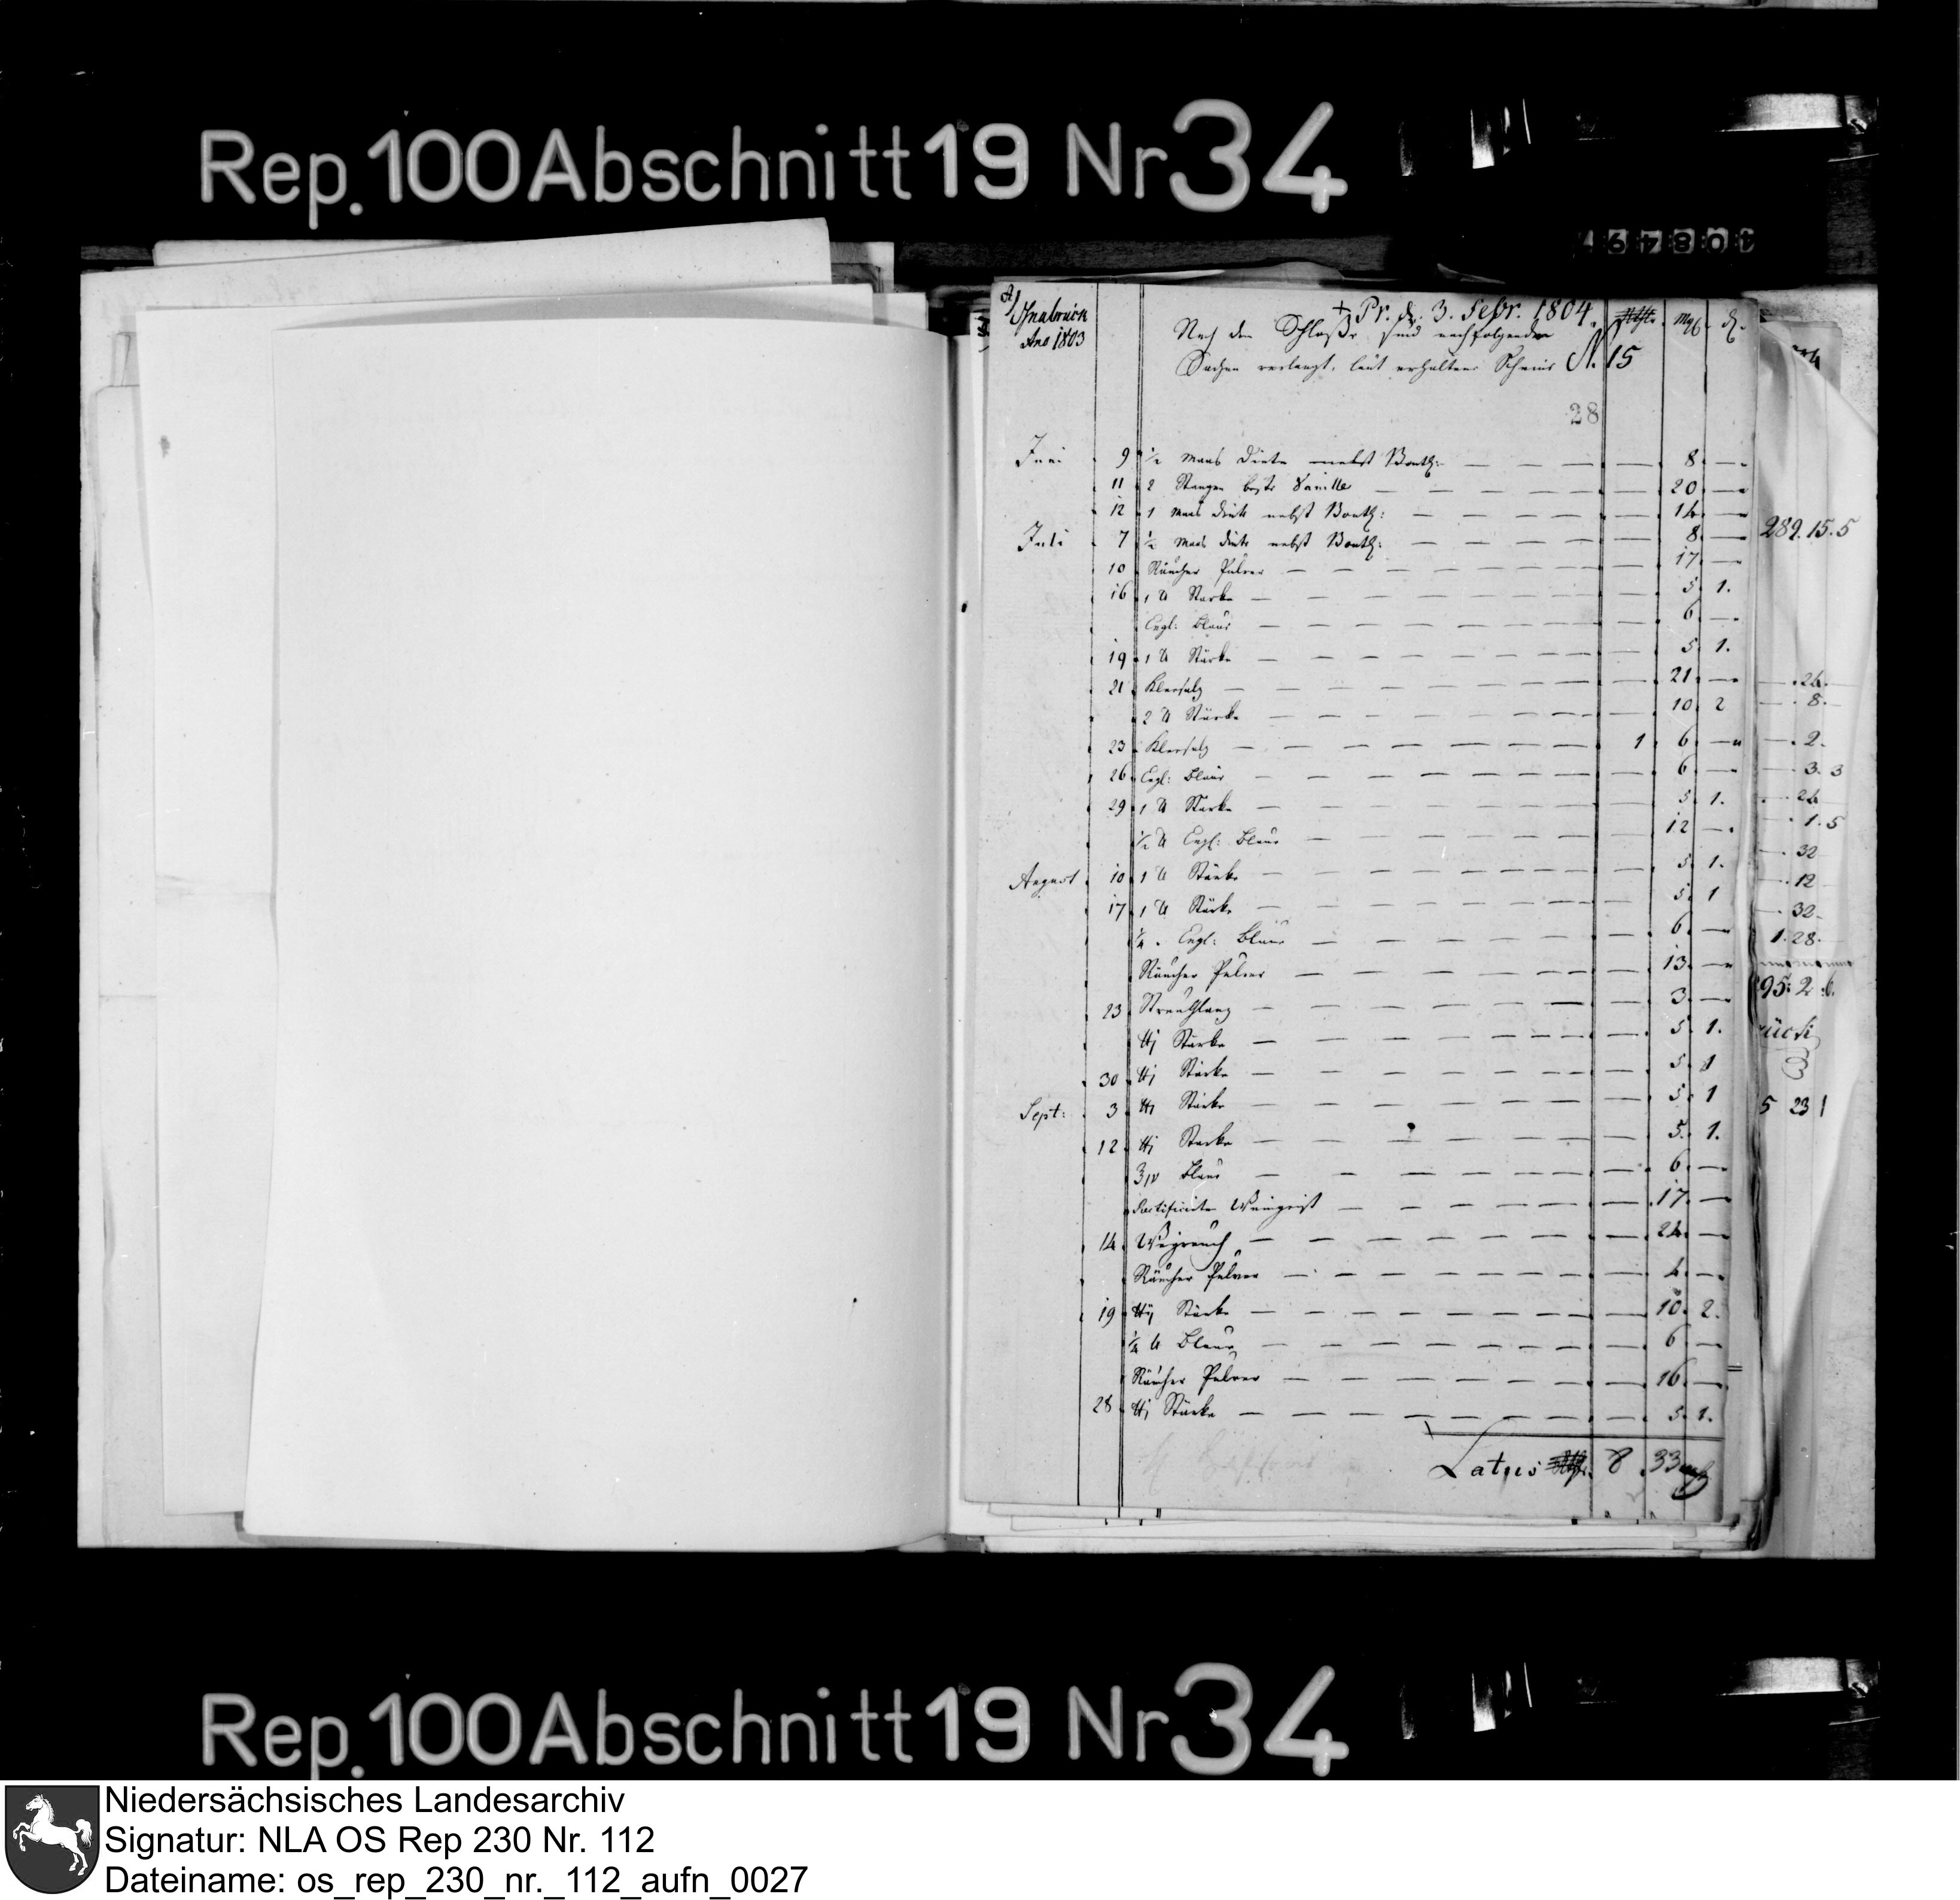 Rep. 100 Abschnitt 19 Nr 34
40849
Osnabrück
Ano 1803
+ Pr. d. 3. Febr. 1804.
Rthlr. Mgl. d.
Nach dem Schloße sind nachfolgende
Sachen verlangt, laut erhaltene Scheins N. 15
28
Juni 9 ½ Maas Dinte nebst Bouth: — — 8 —
11 2 Stangen beste Vanille — — 20 —
12 1 Maas Dinte nebst Bouth: — — 14 —
Juli 7 ½ Maas Dinte nebst Bouth: — — 8 —
10 Räucher Pulver — — 17 —
16 1 ℔ Starke — — 5 1.
Engl: Blaus — — 6 —
19 1 ℔ Stärke — — 5 1.
21 Kleesalz — — 21 —
2 ℔ Stärke — — 10 2
23 Kleesalz — 1 6 —
26 Engl: Blaus — — 6 —
29 1 ℔ Starke — — 5 1.
½ ℔ Engl: Blaus — — 12 —
August 10 1 ℔ Stärke — — 5 1.
17 1 ℔ Stärke — — 5 1
¼ " Engl: Blaus — — 6 —
Räucher Pulver — — 13 —
23 — — 3 —
℔j Stärke — — 5 1.
30 ℔j Stärke — — 5 1
Sept: 3 ℔j Stärke — — 5 1
12 ℔j Starke — — 5 1.
Blaus — — 6 —
Rectificirte Weingeist — — 17 —
14 Weyrauch — — 24 —
Räucher Pulver — — 4 —
19 ℔ij Stärke — — 10 2.
¼ ℔ Blaus — — 6 —
Räucher Pulver — — 16 —
28 ℔j Stärke — — 5 1.
Latus Rthlr. 8 33 mgl
289. 15. 5
24.
8.
2.
3. 3
24
1. 5
32
12
32
1. 28.
95. 2. 6.
ück
5 23 1
Rep. 100 Abschnitt 19 Nr 34
Niedersächsisches Landesarchiv
Signatur: NLA OS Rep 230 Nr. 112
Dateiname: os_rep_230_nr._112_aufn_0027